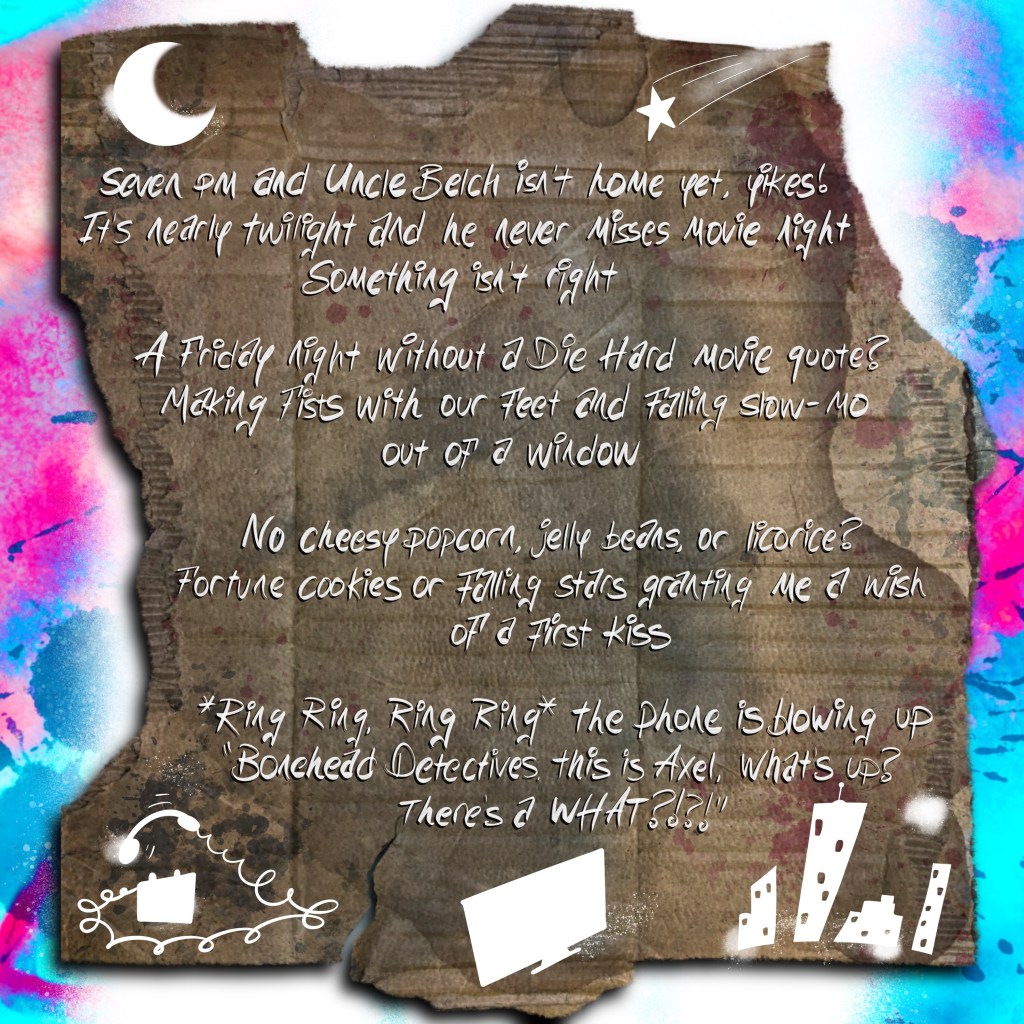 Seven PM and Uncle Belch isn't home yet, yikes!
It's nearly twilight and he never misses movie night
Something isn't right
A Friday night without a Die Hard movie quote?
Making Fists with our Feet and Falling slow-mo
out of a window
No cheesy popcorn, jelly beans, or licorice?
Fortune cookies or Falling stars granting me a wish
of a First kiss
*Ring Ring, Ring Ring* the phone is blowing up
"Bonehead Detectives, this is Axel, what's up?
There's a WHAT?!?!"